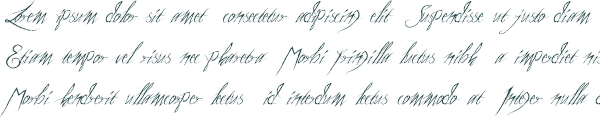 Lorem ipsum dolor sit amet consectetur adipiscing elit Suspendisse ut justo diam
Etiam tempor vel risus nec pharetra Morbi fringilla luctus nibh a imperdiet
Morbi hendrerit ullamcorper lectus id interdum lectus commodo at Integer nulla